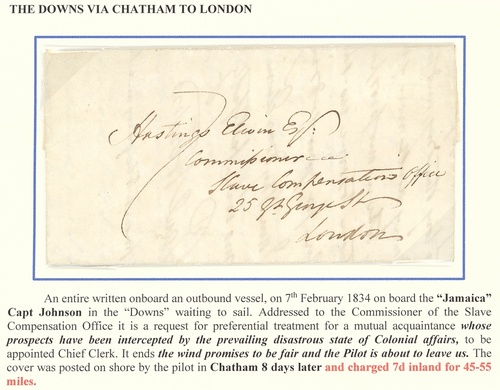 THE DOWNS VIA CHATHAM TO LONDON
Hastings Elwin Esqr.
Commissioner
Slave Compensation Office
25 Gt George St
London
An entire written onboard an outbound vessel, on 7th February 1834 on board the “Jamaica”
Capt Johnson in the “Downs” waiting to sail. Addressed to the Commissioner of the Slave
Compensation Office it is a request for preferential treatment for a mutual acquaintance whose
prospects have been intercepted by the prevailing disastrous state of Colonial affairs, to
be appointed Chief Clerk. It ends the wind promises to be fair and the Pilot is about to leave us. The
cover was posted on shore by the pilot in Chatham 8 days later and charged 7d inland for 45-55
miles.